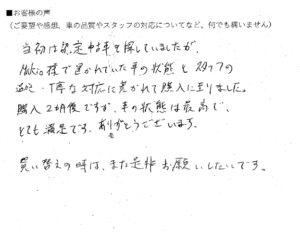 ■お客様の声
(ご要望や感想、車の品質やスタッフの対応についてなど、何でも構いません)
当初は 中古車を探していましたが、
様で置かれていた車の状態とスタッフの
丁寧な対応に惹かれて購入に至りました。
購入2ヶ月後ですが、車の状態は最高で、
とても満足です。ありがとうございます。
買い替えの時は、また是非お願いしたいです。